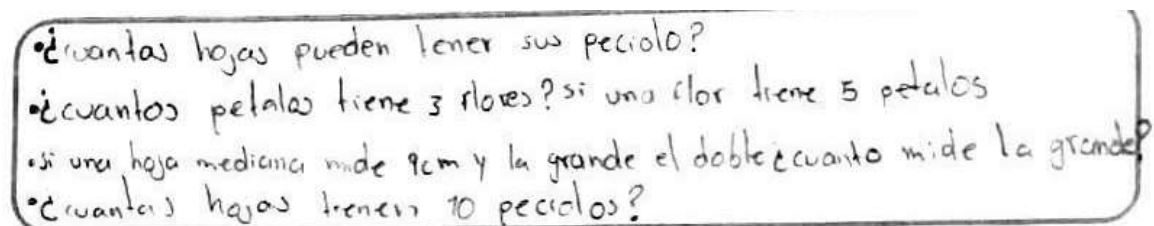 •¿cuantas hojas pueden tener sus peciolo?
•¿cuantos petalos tiene 3 flores? si una flor tiene 5 petalos
•si una hoja mediana mide 9cm y la grande el doble ¿cuanto mide la grande?
•¿cuantas hojas tienen 10 peciolos?